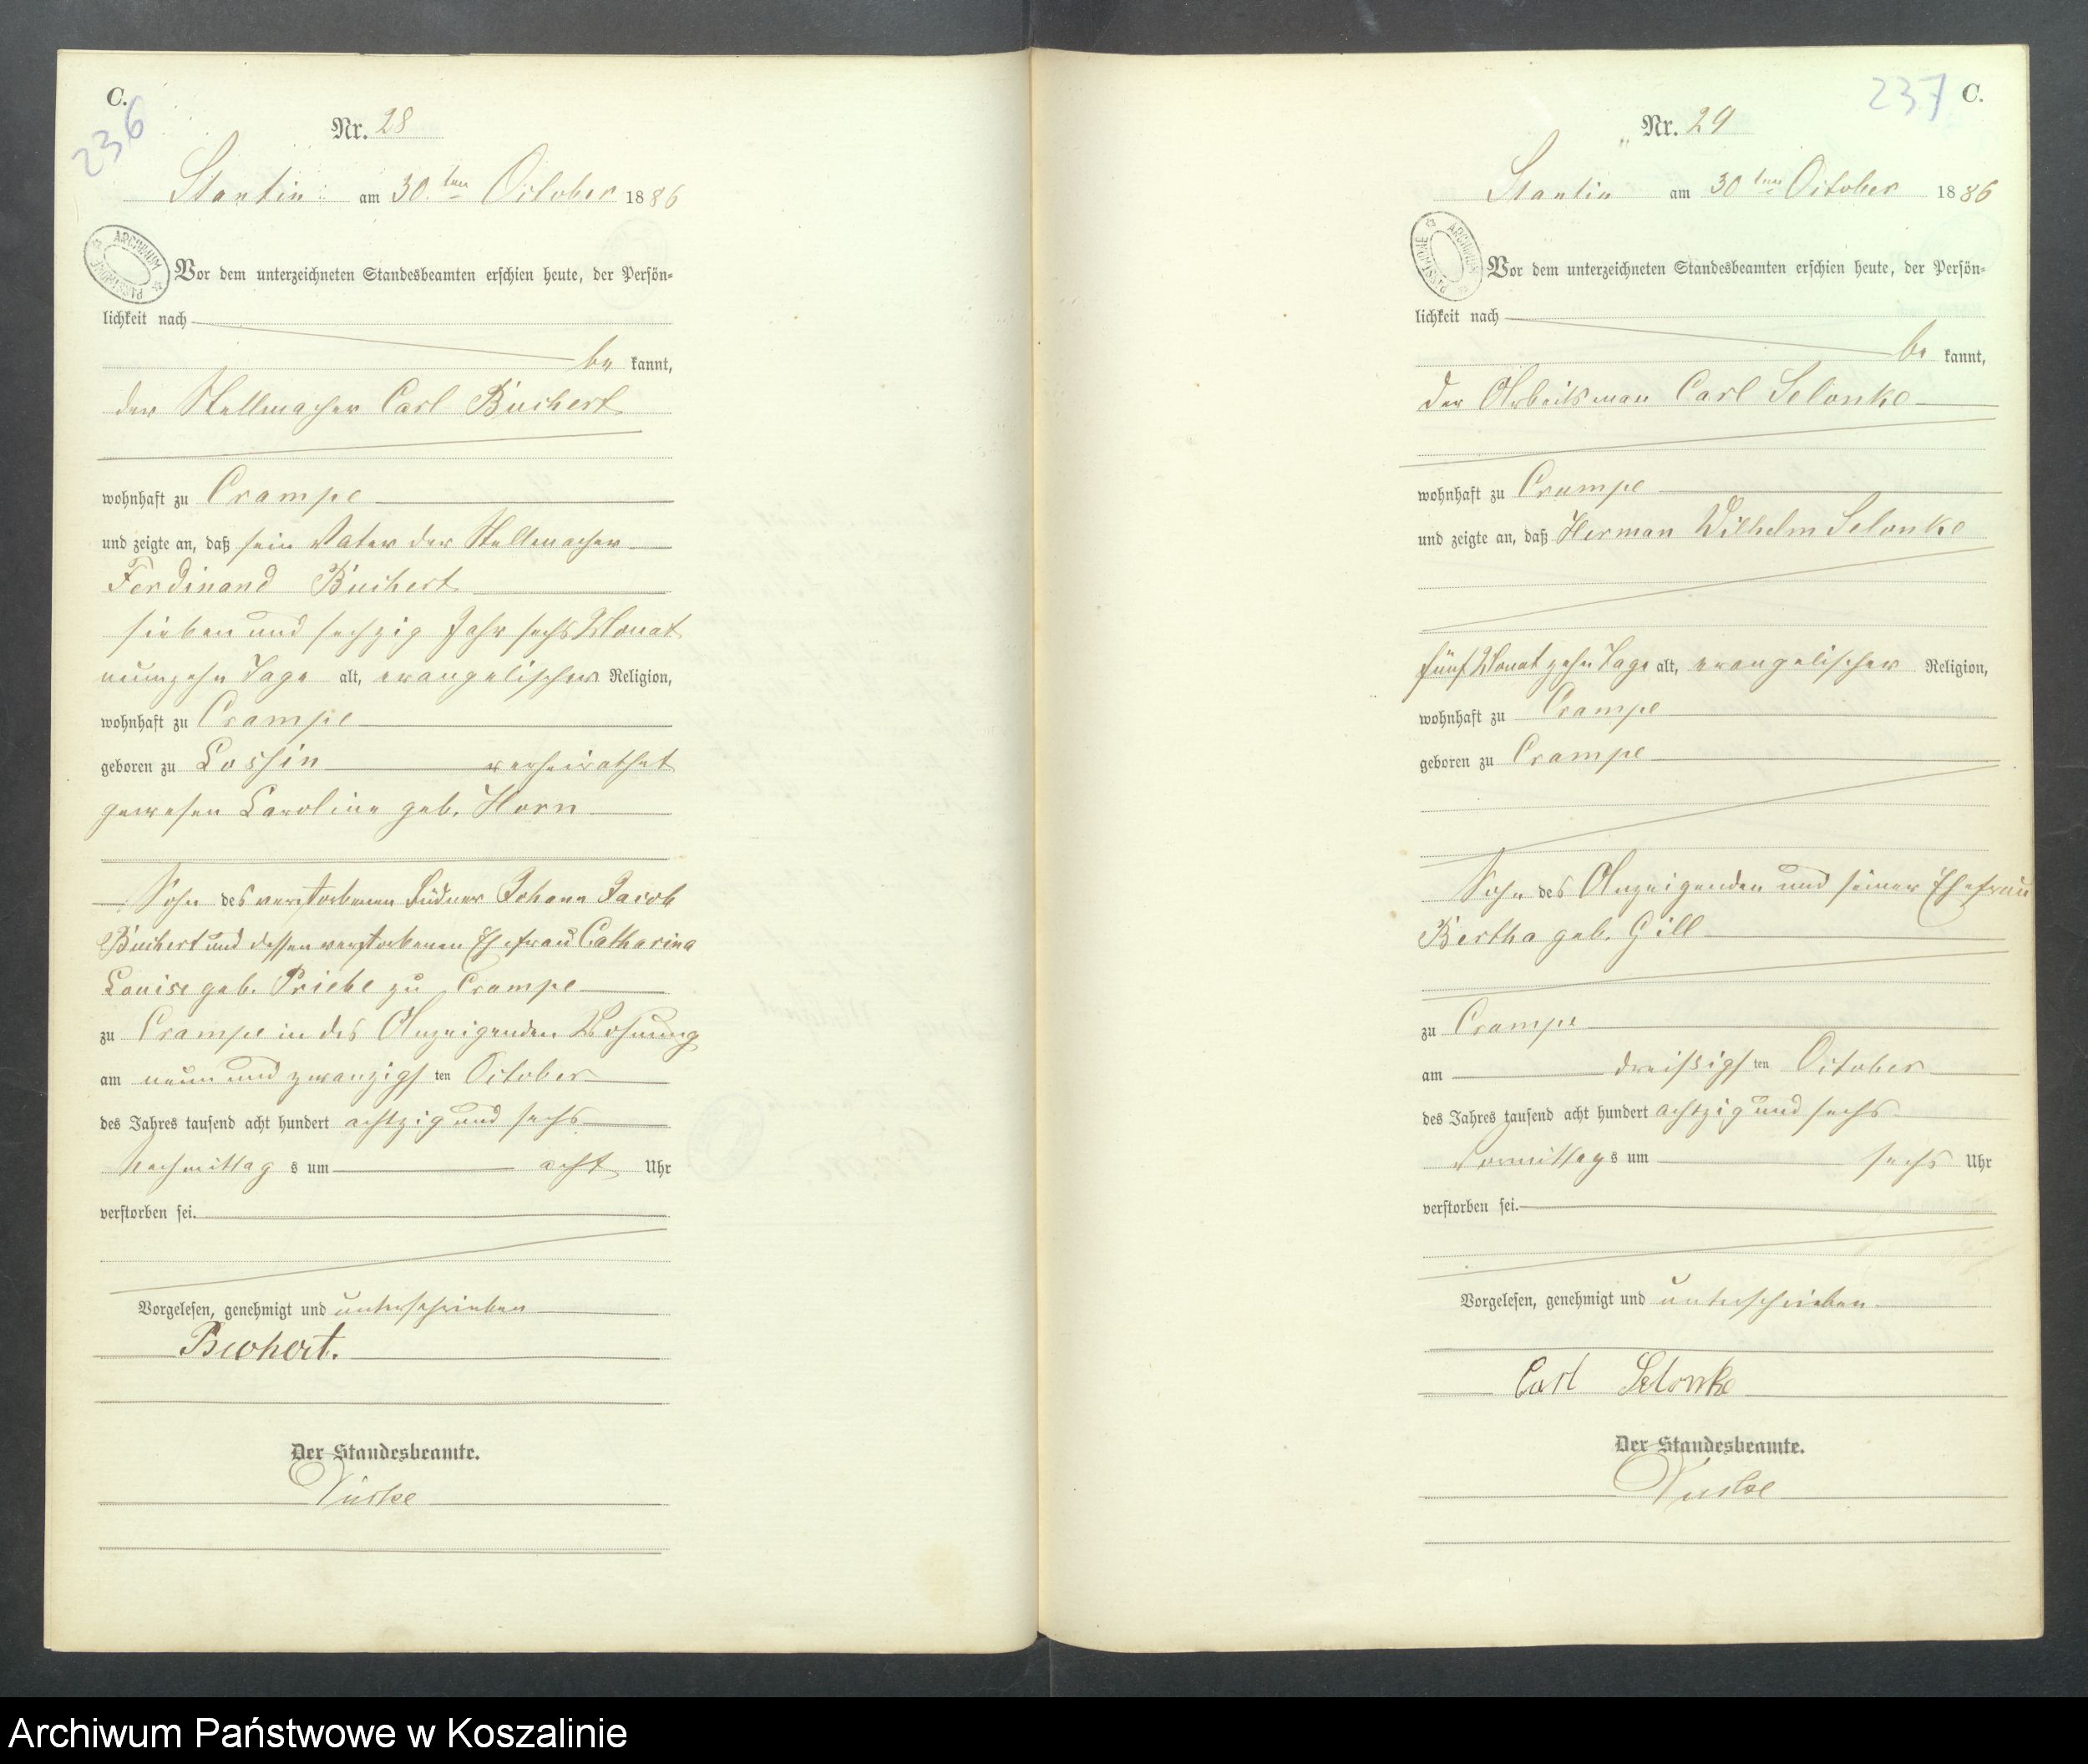 C.
236
Nr. 28
Stantin am 30ten October 1886
ARCHIWUM PAŃSTWOWE
Vor dem unterzeichneten Standesbeamten erschien heute, der Persön-
lichkeit nach
be kannt,
der Stellmacher Carl Buchert
wohnhaft zu Crampe
und zeigte an, daß sein Vater der Stellmacher
Ferdinand Buchert
sieben und sechzig Jahr sechs Monat
neunzehn Tage alt, evangelischer Religion,
wohnhaft zu Crampe
geboren zu Lossin verheirathet
gewesen Caroline geb. Horn
Sohn des verstorbenen Büdner Johann Jacob
Buchert und dessen verstorbenen Ehefrau Catharina
Louise geb. Priebe zu Crampe
zu Crampe in des Anzeigenden Wohnung
am neun und zwanzigsten October
des Jahres tausend acht hundert achtzig und sechs
Nachmittags um acht Uhr
verstorben sei.
Vorgelesen, genehmigt und unterschrieben
Buchert.
Der Standesbeamte.
237 C.
Nr. 29
Stantin am 30ten October 1886
ARCHIWUM PAŃSTWOWE
Vor dem unterzeichneten Standesbeamten erschien heute, der Persön-
lichkeit nach
be kannt,
der Arbeitsman Carl Selonke
wohnhaft zu Crampe
und zeigte an, daß Herman Wilhelm Selonke
fünf Monat zehn Tage alt, evangelischer Religion,
wohnhaft zu Crampe
geboren zu Crampe
Sohn des Anzeigenden und seiner Ehefrau
Bertha geb. Gill
zu Crampe
am dreißigsten October
des Jahres tausend acht hundert achtzig und sechs
Vormittags um sechs Uhr
verstorben sei.
Vorgelesen, genehmigt und unterschrieben
Carl Selonke
Der Standesbeamte.
Archiwum Państwowe w Koszalinie